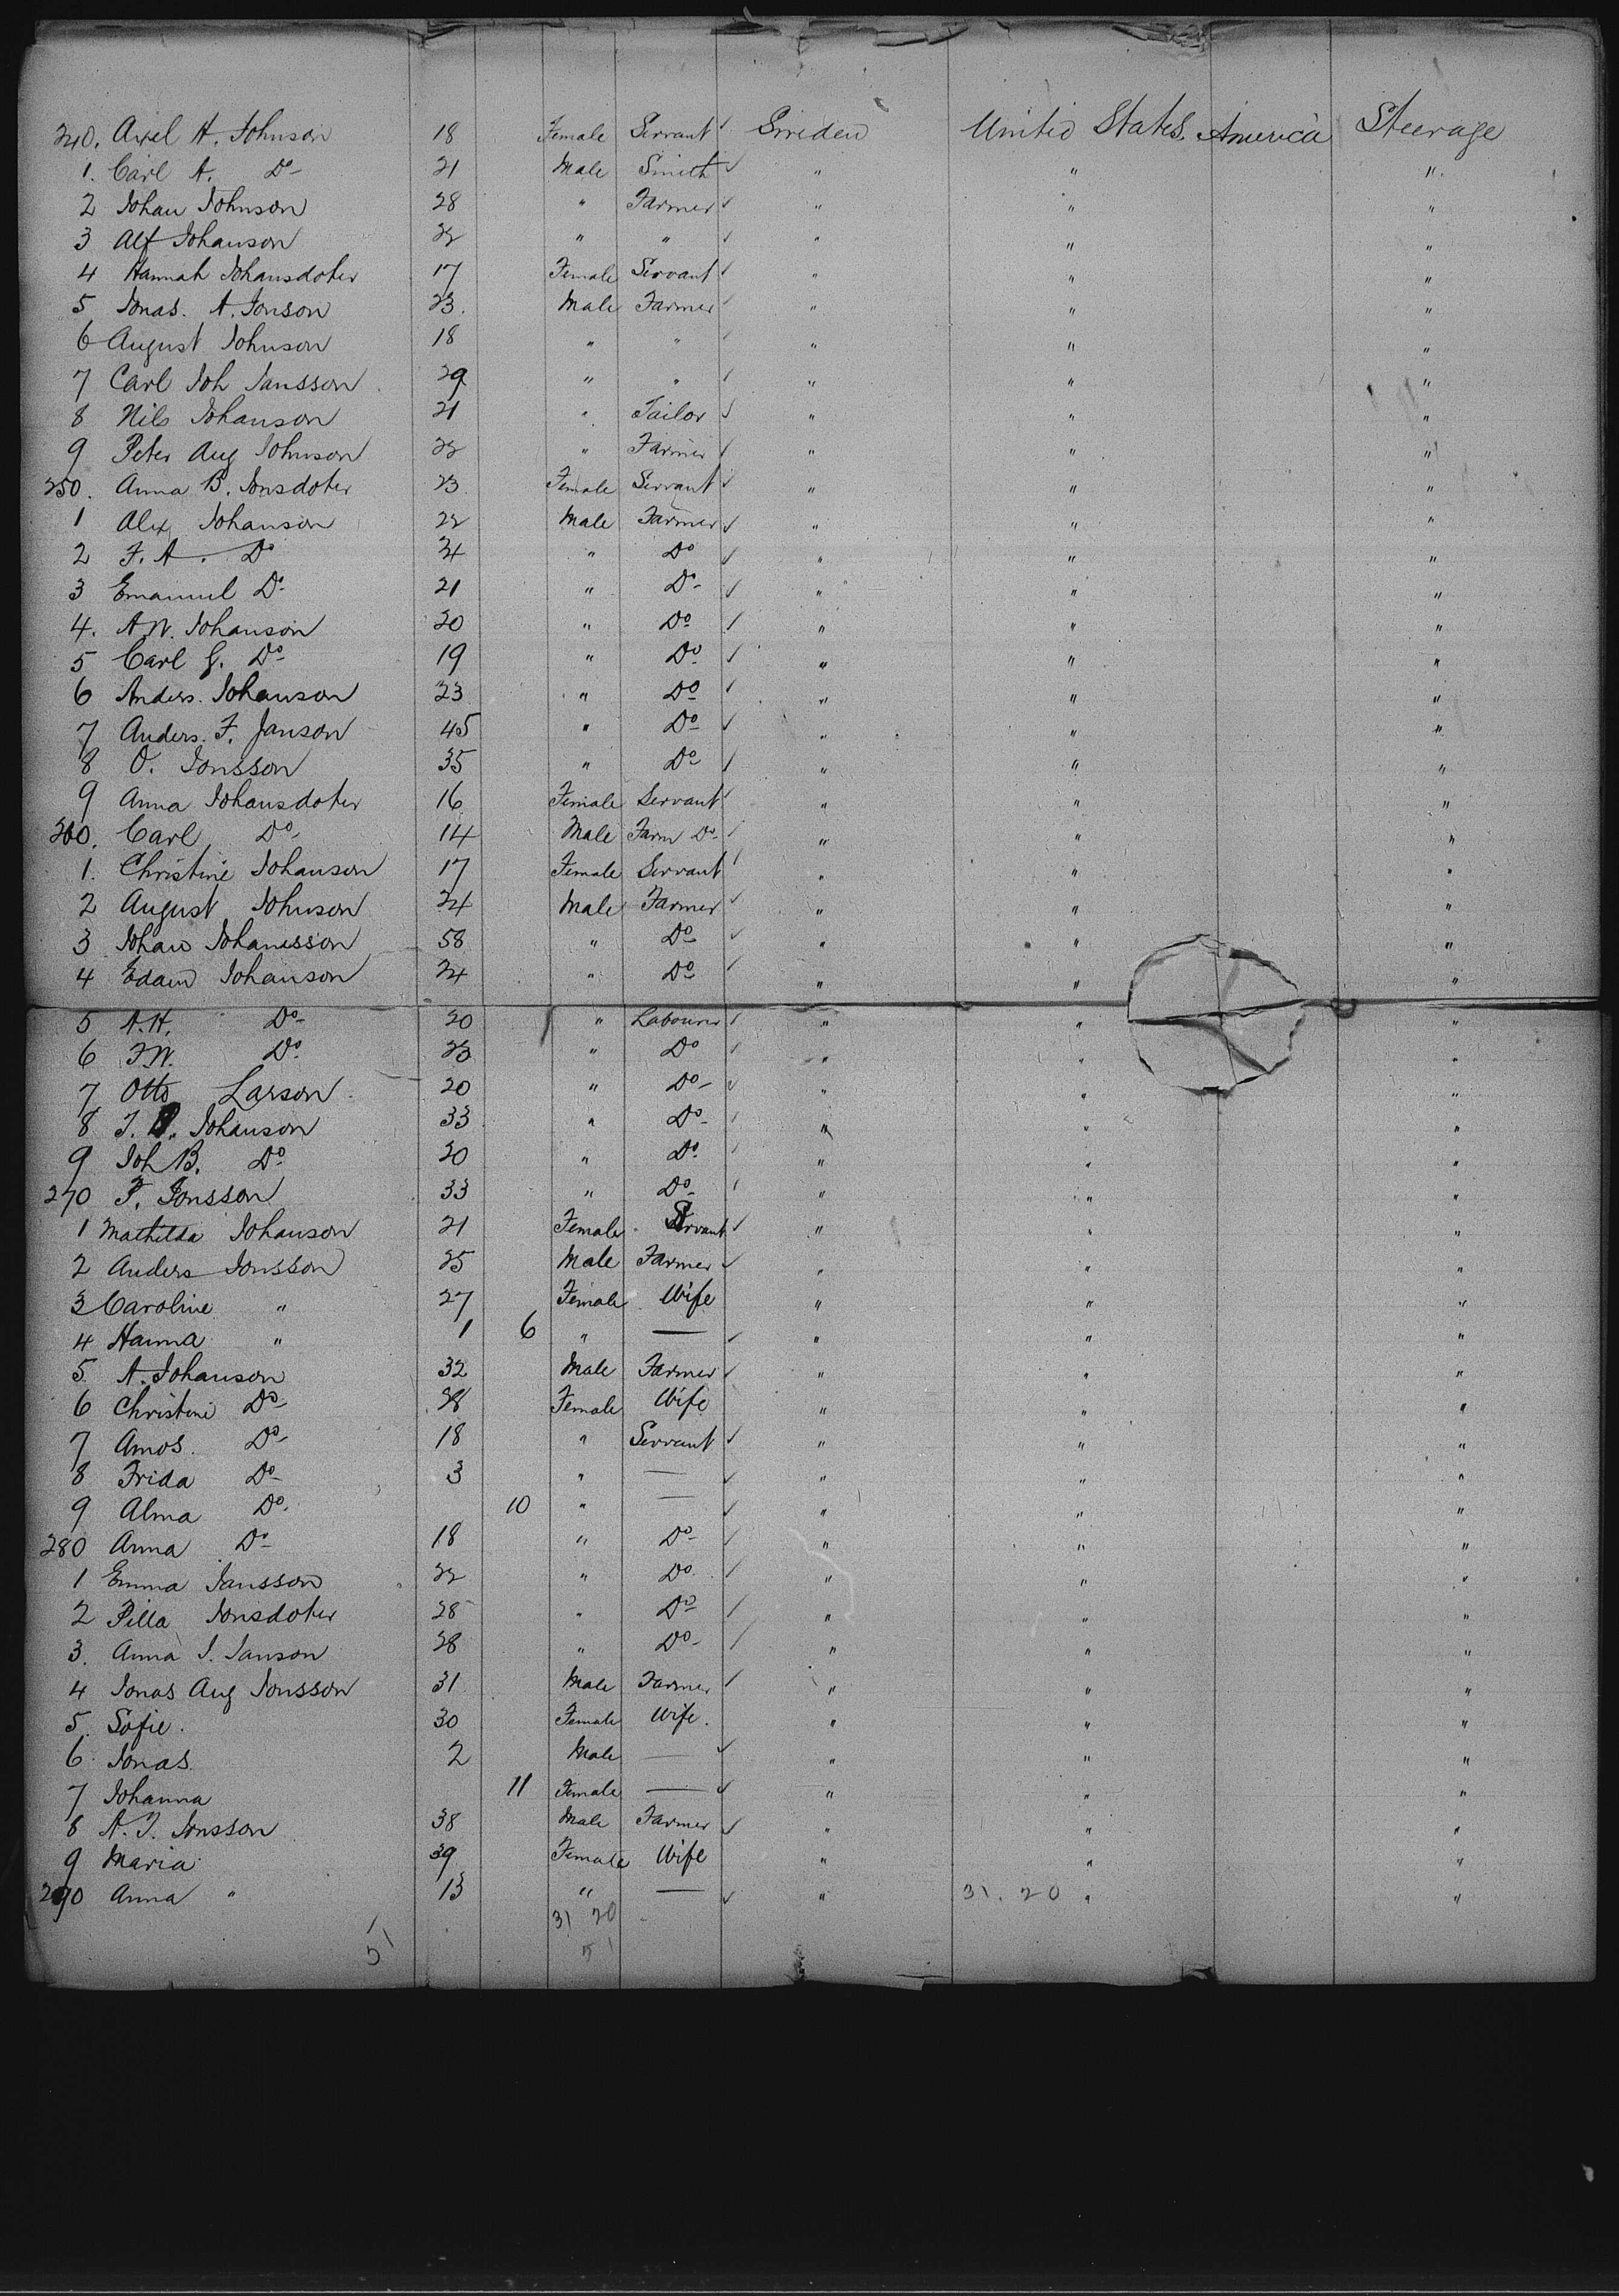 240. Axel A. Johnson 18 Female Servant ✓ Sweden United States America Steerage
1. Carl A. Do 21 Male Smith ✓ " " "
2 Johan Johnson 28 " Farmer ✓ " " "
3 Alf Johanson 22 " " ✓ " " "
4 Hannah Johansdoter 17 Female Servant ✓ " " "
5 Jonas. A. Jonson 23. Male Farmer ✓ " " "
6 August Johnson 18 " " ✓ " " "
7 Carl Joh Jansson 29 " " ✓ " " "
8 Nils Johanson 21 " Tailor ✓ " " "
9 Peter Aug Johnson 22 " Farmer ✓ " " "
250. Anna B. Jonsdoter 23 Female Servant ✓ " " "
1 Alex Johanson 22 Male Farmer ✓ " " "
2 F. A. Do 24 " Do ✓ " " "
3 Emanuel Do 21 " Do ✓ " " "
4. A W. Johanson 20 " Do ✓ " " "
5 Carl G. Do 19 " Do ✓ " " "
6 Anders. Johanson 23 " Do ✓ " " "
7 Anders. F. Janson 45 " Do ✓ " " "
8 O. Jonsson 35 " Do ✓ " " "
9 Anna Johansdoter 16 Female Servant ✓ " " "
260. Carl Do 14 Male Farm Do ✓ " " "
1. Christine Johanson 17 Female Servant ✓ " " "
2 August Johnson 24 Male Farmer ✓ " " "
3 Johan Johanesson 58 " Do ✓ " " "
4 Edwin Johanson 24 " Do ✓ " " "
5 A. H. Do 20 " Labourer ✓ " " "
6 F. W. Do 23 " Do ✓ " " "
7 Otto Larson 20 " Do ✓ " " "
8 J. Johanson 33 " Do ✓ " " "
9 Joh B. Do 20 " Do ✓ " " "
270 F. Jonsson 33 " Do ✓ " " "
1 Mathilda Johanson 21 Female Servant ✓ " " "
2 Anders Jonsson 25 Male Farmer ✓ " " "
3 Caroline " 27 Female Wife " " "
4 Hanna " 1 6 " — ✓ " " "
5. A. Johanson 32 Male Farmer ✓ " " "
6 Christine Do 28 Female Wife " " "
7 Amos. Do 18 " Servant ✓ " " "
8 Frida Do 3 " — ✓ " " "
9 Alma Do 10 " — ✓ " " "
280 Anna Do 18 " Do ✓ " " "
1 Emma Jansson 22 " Do ✓ " " "
2 Pella Jonsdoter 28 " Do ✓ " " "
3. Anna J. Janson 28 " Do ✓ " " "
4 Jonas Aug Jonsson 31 Male Farmer ✓ " " "
5. Sofie. 30 Female Wife. " " "
6 Jonas 2 Male — ✓ " " "
7 Johanna 11 Female — ✓ " " "
8 A. J. Jonsson 38 Male Farmer ✓ " " "
9 Maria 39 Female Wife " " "
290 Anna " 13 " — ✓ " 31. 20 " "
31 20
51 51